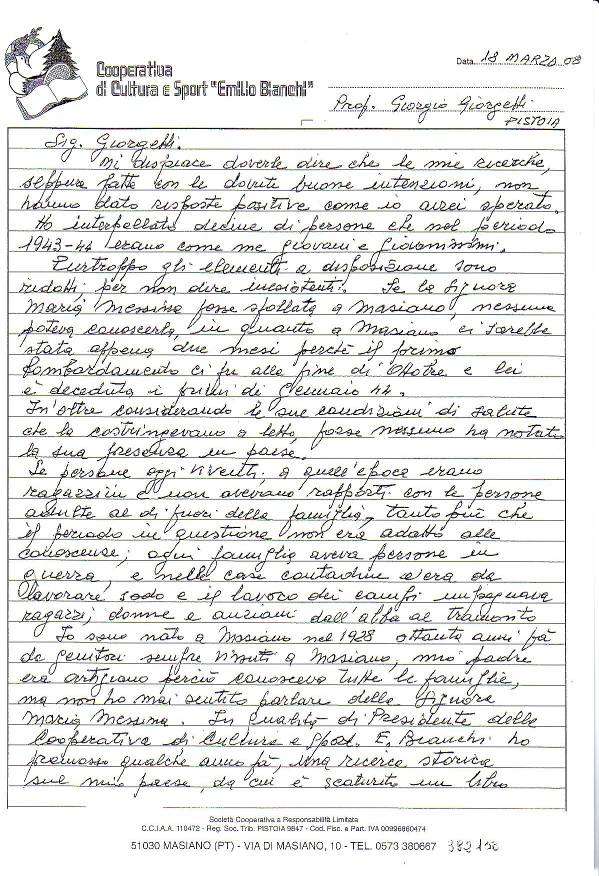 Cooperativa
di Cultura e Sport "Emilio Bianchi"
Data 18 MARZO 08
Prof. Giorgio Giorgetti
PISTOIA
Sig. Giorgetti.
Mi dispiace doverle dire che le mie ricerche,
seppure fatte con le dovute buone intenzioni, non
hanno dato risposte positive come io avrei sperato.
Ho interpellato decine di persone che nel periodo
1943-44 erano come me giovani e giovanissimi.
Purtroppo gli elementi a disposizione sono
ridotti, per non dire inesistenti. Se la Signora
Maria Messina fosse sfollata a Masiano, nessuno
poteva conoscerla, in quanto a Masiano ci sarebbe
stata appena due mesi perchè il primo
bombardamento ci fu alla fine di Ottobre e lei
è deceduta i primi di Gennaio 44.
In'oltre considerando le sue condizioni di salute
che la costringevano a letto, forse nessuno ha notato
la sua presenza in paese.
Le persone oggi viventi, a quell'epoca erano
ragazzini e non avevano rapporti con le persone
adulte al di fuori della famiglia, tanto più che
il periodo in questione non era adatto alle
conoscense; ogni famiglia aveva persone in
guerra, e nelle case contadine c'era da
lavorare sodo e il lavoro dei campi impegnava
ragazzi, donne e anziani dall'alba al tramonto
Io sono nato a Masiano nel 1928 ottanta anni fà
da genitori sempre vissuti a Masiano, mio padre
era artigiano perciò conosceva tutte le famiglie,
ma non ho mai sentito parlare della Signora
Maria Messina. In qualità di Presidente della
Cooperativa di Cultura e Sport E. Bianchi ho
promosso qualche anno fà, una ricerca storica
sul mio paese, da cui è scaturito un libro
Società Cooperativa a Responsabilità Limitata
C.C.I.A.A. 110472 - Reg. Soc. Trib. PISTOIA 9847 - Cod. Fisc. e Part. IVA 00996860474
51030 MASIANO (PT) - VIA DI MASIANO, 10 - TEL. 0573 380667 382158